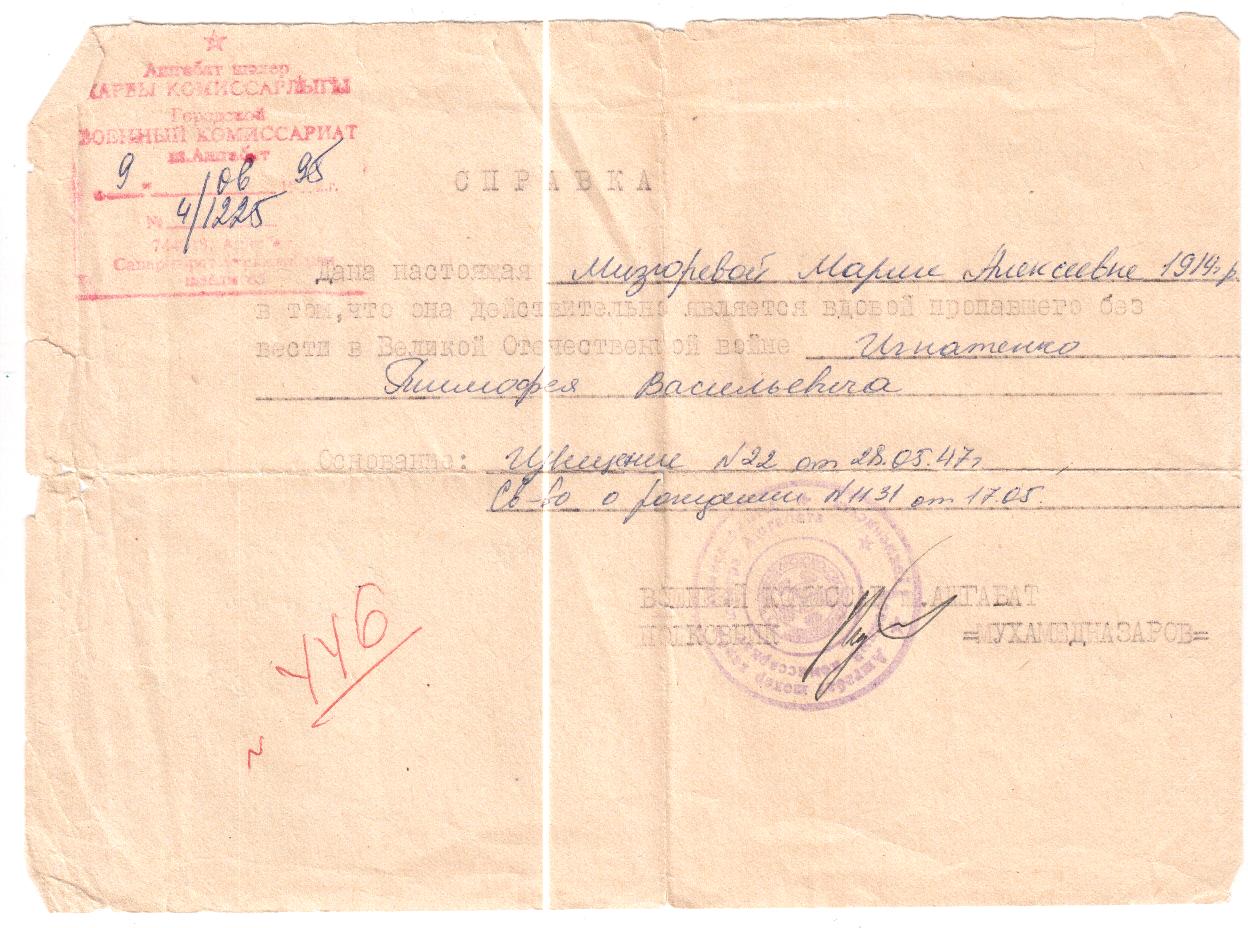 Ашгабат шәхер
ХАРБЫ КОМИССАРЛЫГЫ
Городской
ВОЕННЫЙ КОМИССАРИАТ
гв. Ашгабат
9 " 06 95 г.
№ 4/1225
шаёлы 63
СПРАВКА
Дана настоящая Мизюревой Марии Алексеевне 1914г.р.
в том,что она действительно является вдовой пропавшего без
вести в Великой Отечественной войне Игнатенко
Тимофея Васильевича
Основание: Извещение №22 от 28.05.47г
Св-во о рождении №1131 от 17.05.
ВОЕННЫЙ КОМИССАР Г.АШГАБАТ
ПОЛКОВНИК =МУХАМЕДНАЗАРОВ=
446